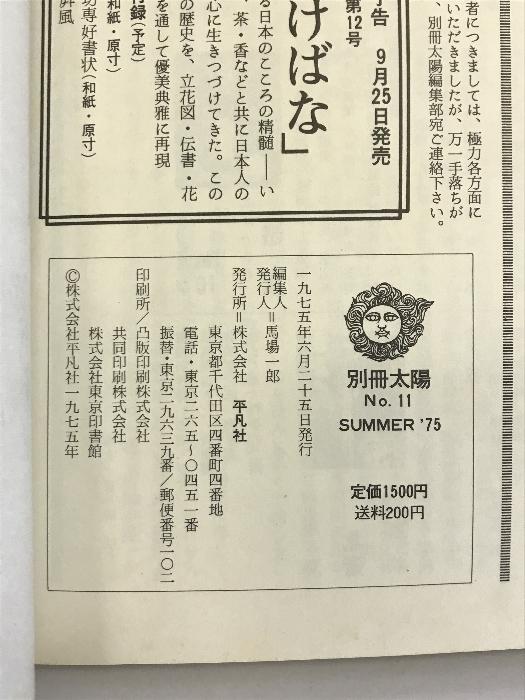 者につきましては、極力各方面に
いただきましたが、万一手落ちが
、別冊太陽編集部宛ご連絡下さい。
予告 9月25日発売
第12号
けばな」
る日本のこころの精髄——い
、茶・香などと共に日本人の
心に生きつづけてきた。この
の歴史を、立花図・伝書・花
を通して優美典雅に再現
付録(予定)
和紙・原寸)
坊専好書状(和紙・原寸)
屏風
別冊太陽
No. 11
SUMMER '75
定価1500円
送料200円
一九七五年六月二十五日発行
編集人
発行人=馬場一郎
発行所=株式会社 平凡社
東京都千代田区四番町四番地
電話・東京二六五〜〇四五一番
振替・東京二九六三九番/郵便番号一〇二
印刷所/凸版印刷株式会社
共同印刷株式会社
株式会社東京印書館
©株式会社平凡社一九七五年